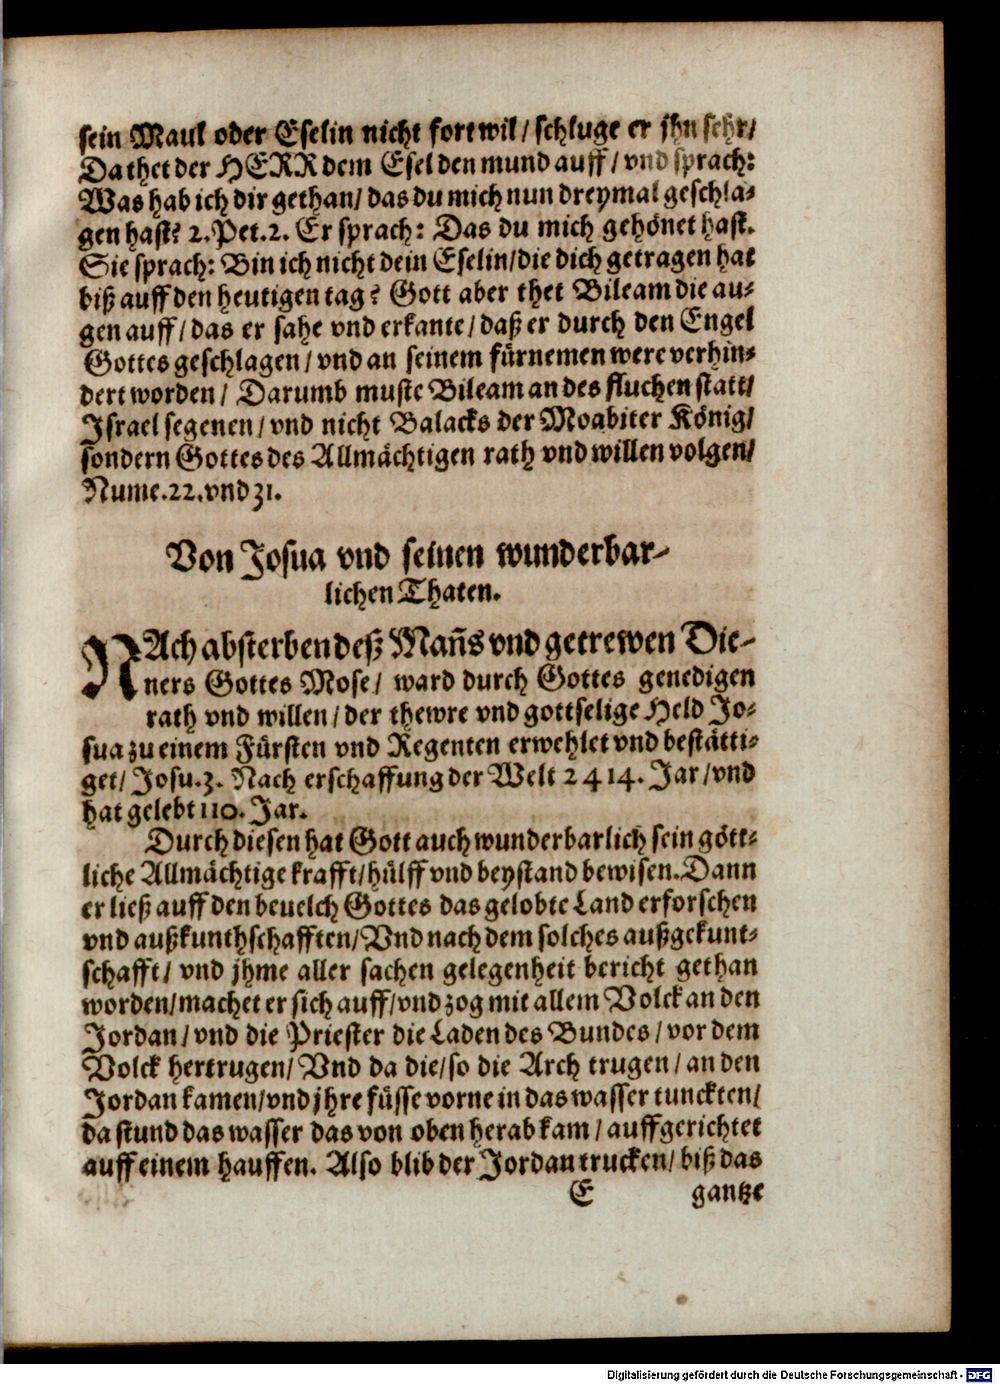 sein Maul oder Eselin nicht fort wil / schluge er jhn sehr /
Da thet der HERR dem Esel den mund auff / vnd sprach:
Was hab ich dir gethan / das du mich nun dreymal geschla-
gen hast? 2. Pet. 2. Er sprach: Das du mich gehönet hast.
Sie sprach: Bin ich nicht dein Eselin / die dich getragen hat
biß auff den heutigen tag? Gott aber thet Bileam die au-
gen auff / das er sahe vnd erkante / daß er durch den Engel
Gottes geschlagen / vnd an seinem fürnemen were verhin-
dert worden / Darumb muste Bileam an des fluchen statt /
Israel segenen / vnd nicht Balacks der Moabiter König /
sondern Gottes des Allmächtigen rath vnd willen volgen /
Nume. 22. vnd 31.
Von Josua vnd seinen wunderbar-
lichen Thaten.
NAch absterben deß Mañs vnd getrewen Die-
ners Gottes Mose / ward durch Gottes genedigen
rath vnd willen / der thewre vnd gottselige Held Jo-
sua zu einem Fürsten vnd Regenten erwehlet vnd bestätti-
get / Josu. 3. Nach erschaffung der Welt 2414. Jar / vnd
hat gelebt 110. Jar.
Durch diesen hat Gott auch wunderbarlich sein gött-
liche Allmächtige krafft / hülff vnd beystand bewisen. Dann
er ließ auff den beuelch Gottes das gelobte Land erforschen
vnd außkunthschafften / Vnd nach dem solches außgekunt-
schafft / vnd jhme aller sachen gelegenheit bericht gethan
worden / machet er sich auff / vnd zog mit allem Volck an den
Jordan / vnd die Priester die Laden des Bundes / vor dem
Volck hertrugen / Vnd da die / so die Arch trugen / an den
Jordan kamen / vnd jhre füsse vorne in das wasser tunckten /
da stund das wasser das von oben herab kam / auffgerichtet
auff einem hauffen. Also blib der Jordan trucken / biß das
E gantze
Digitalisierung gefördert durch die Deutsche Forschungsgemeinschaft - DFG